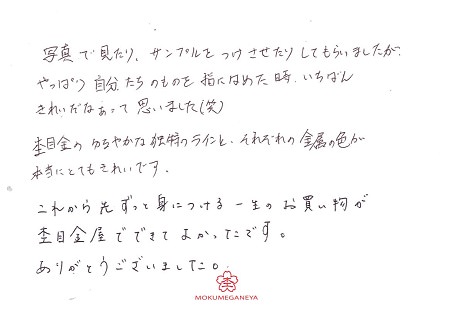 写真で見たり、サンプルをつけさせたりしてもらいましたが、
やっぱり自分たちのものを指にはめた時、いちばん
きれいだなぁって思いました(笑)
杢目金のゆるやかな独特のラインと、それぞれの金属の色が
本当にとてもきれいです。
これから先ずっと身につける一生のお買い物が
杢目金屋でできてよかったです。
ありがとうございました。
MOKUMEGANEYA